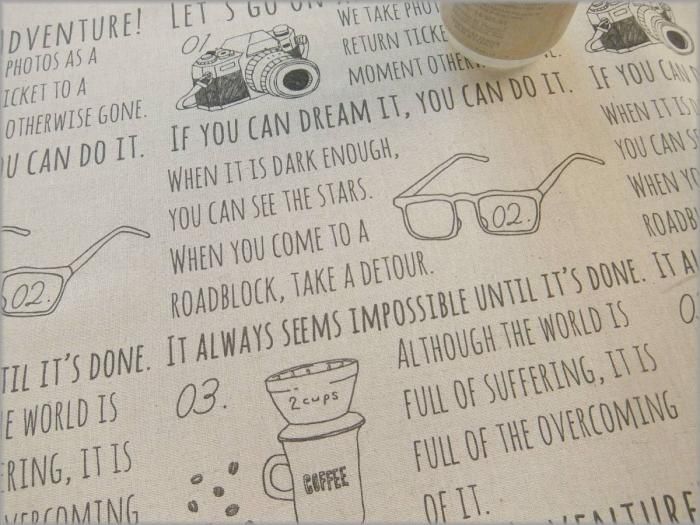 DVENTURE!
PHOTOS AS A
ICKET TO A
OTHERWISE GONE.
OU CAN DO IT.
02.
TIL IT'S DONE.
E WORLD IS
ERING, IT IS
VERCOMING
LET'S GO ON
01.
WE TAKE PHOT
RETURN TICKE
MOMENT OTHERW
IF YOU CAN DREAM IT, YOU CAN DO IT.
WHEN IT IS DARK ENOUGH,
YOU CAN SEE THE STARS.
WHEN YOU COME TO A
ROADBLOCK, TAKE A DETOUR.
02.
IT ALWAYS SEEMS IMPOSSIBLE UNTIL IT'S DONE.
03.
2 cups
COFFEE
ALTHOUGH THE WORLD IS
FULL OF SUFFERING, IT IS
FULL OF THE OVERCOMING
OF IT.
VENTURE
IF YOU CAN
WHEN IT IS
YOU CAN S
WHEN YO
ROADB
IT AL